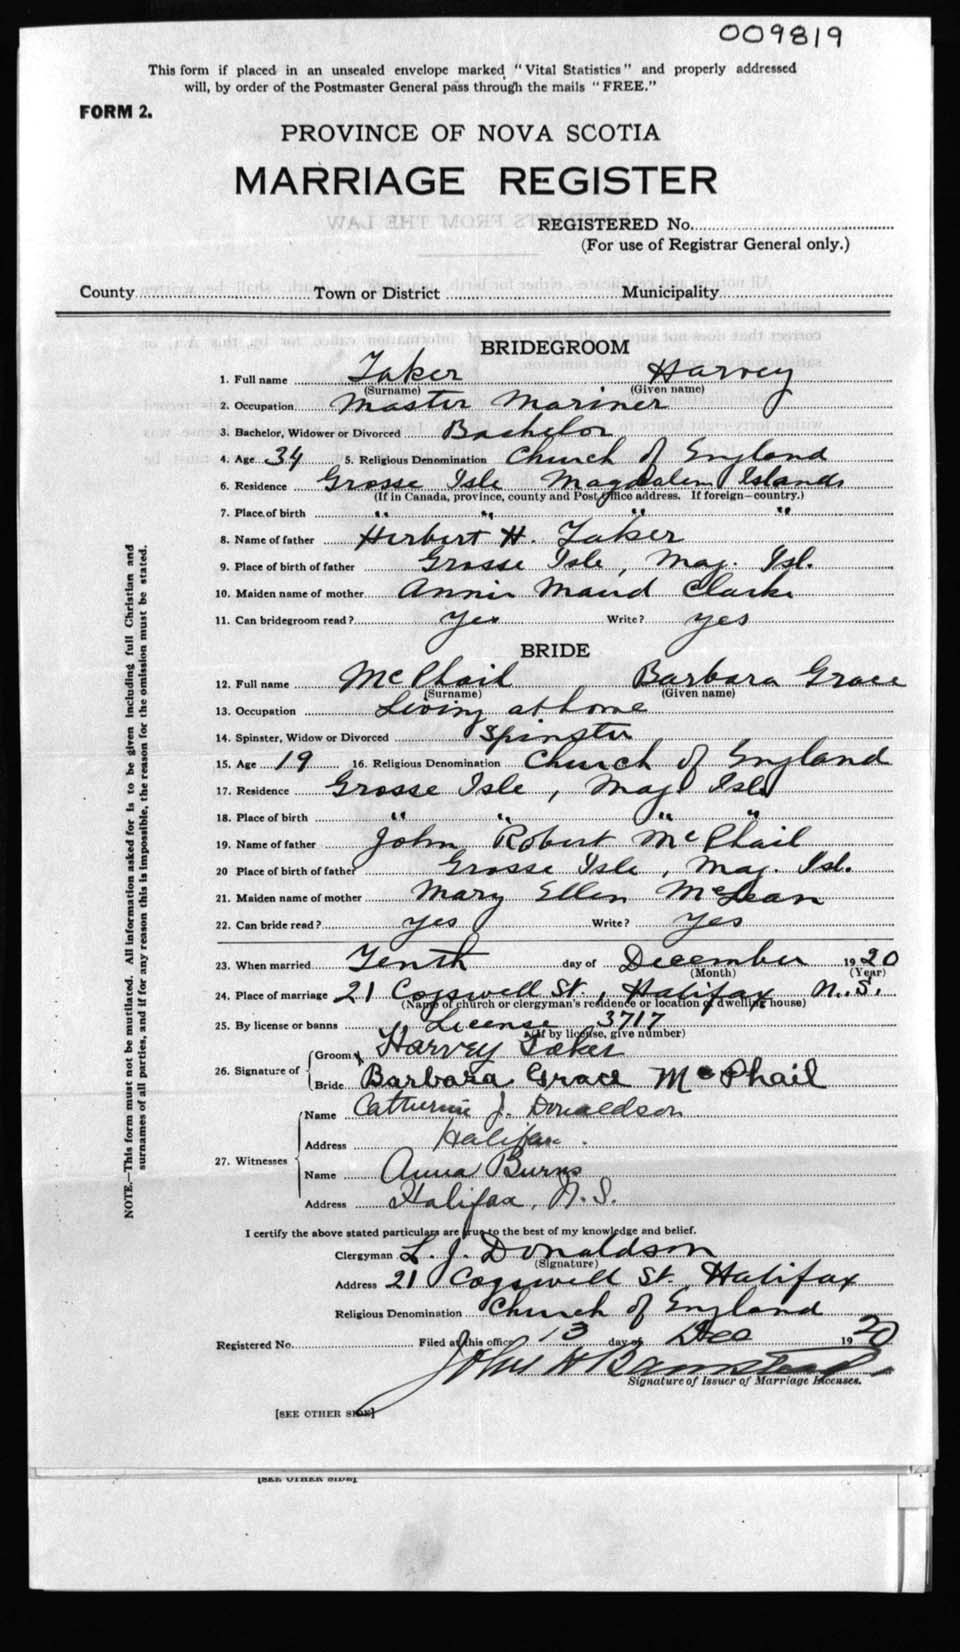 009819
This form if placed in an unsealed envelope marked "Vital Statistics" and properly addressed
will, by order of the Postmaster General pass through the mails "FREE."
FORM 2.
PROVINCE OF NOVA SCOTIA
MARRIAGE REGISTER
REGISTERED No.
(For use of Registrar General only.)
County Town or District Municipality
BRIDEGROOM
1. Full name Taker Harvey
(Surname) (Given name)
2. Occupation Master Mariner
3. Bachelor, Widower or Divorced Bachelor
4. Age 34 5. Religious Denomination Church of England
6. Residence Grosse Isle Magdalen Islands
(If in Canada, province, county and Post Office address. If foreign—country.)
7. Place of birth " " " "
8. Name of father Herbert H. Taker
9. Place of birth of father Grosse Isle, Mag. Isl.
10. Maiden name of mother Annie Maud Clarke
11. Can bridegroom read? Yes Write? yes
BRIDE
12. Full name McPhail Barbara Grace
(Surname) (Given name)
13. Occupation Living at home
14. Spinster, Widow or Divorced Spinster
15. Age 19 16. Religious Denomination Church of England
17. Residence Grosse Isle, Mag. Isl.
18. Place of birth " " " "
19. Name of father John Robert McPhail
20 Place of birth of father Grosse Isle, Mag. Isl.
21. Maiden name of mother Mary Ellen McLean
22. Can bride read? yes Write? yes
23. When married Tenth day of December 1920
(Month) (Year)
24. Place of marriage 21 Cogswell St., Halifax N.S.
(Name of church or clergyman's residence or location of dwelling house)
25. By license or banns License 3717
(If by license, give number)
26. Signature of
Groom x Harvey Taker
Bride Barbara Grace McPhail
27. Witnesses
Name Catherine J. Donaldson
Address Halifax.
Name Anna Burns
Address Halifax, N.S.
I certify the above stated particulars are true to the best of my knowledge and belief.
Clergyman L. J. Donaldson
(Signature)
Address 21 Cogswell St. Halifax
Religious Denomination Church of England
Registered No. Filed at this office 13 day of Dec 1920
John H Barnstead
Signature of Issuer of Marriage Licenses.
[SEE OTHER SIDE]
[SEE OTHER SIDE]
NOTE.—This form must not be mutilated. All information asked for is to be given including full Christian and
surnames of all parties, and if for any reason this is impossible, the reason for the omission must be stated.